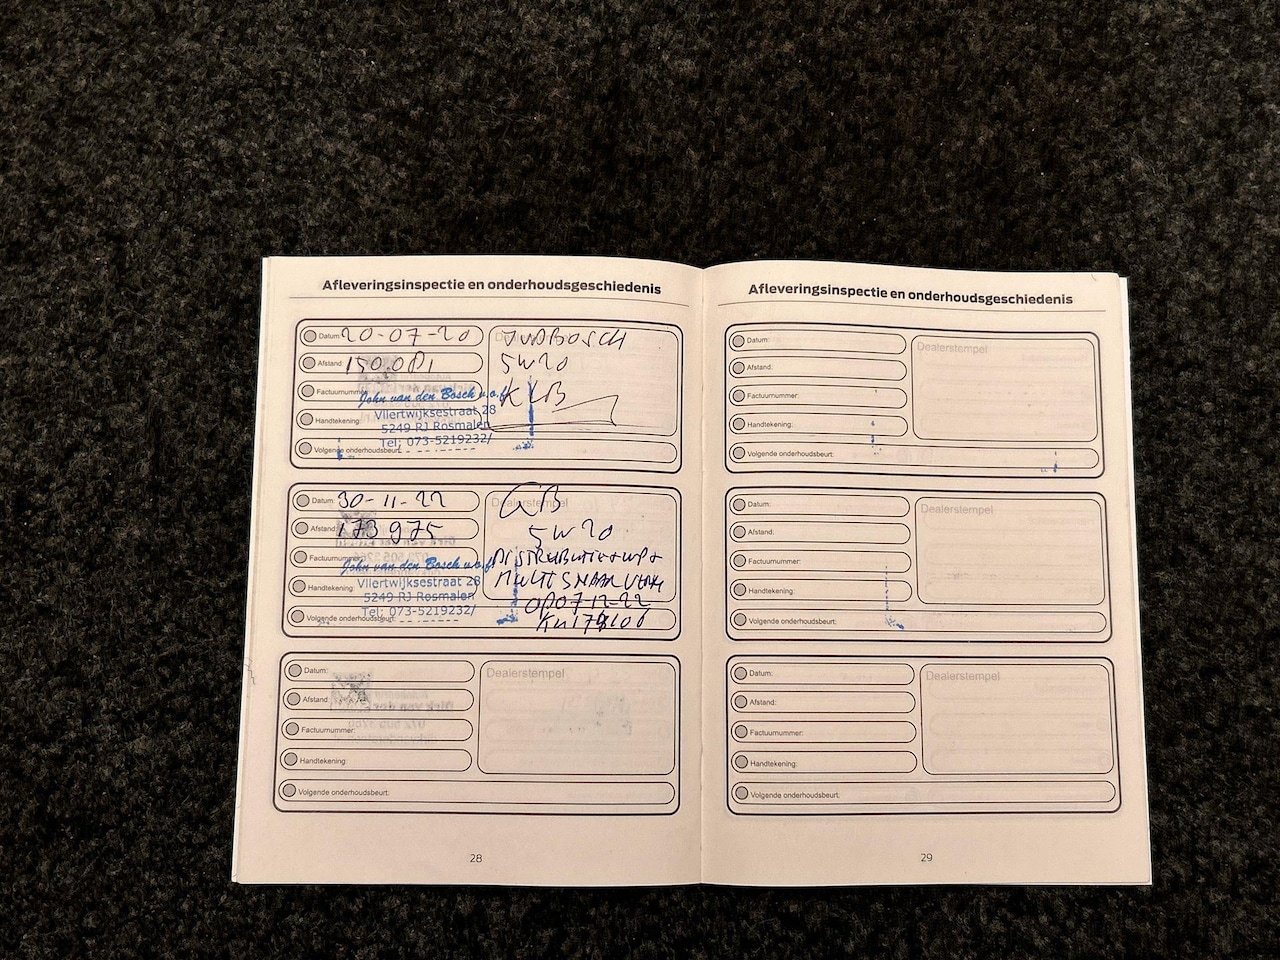 Afleveringsinspectie en onderhoudsgeschiedenis
Datum: 20-07-20
Afstand: 150.081
Factuurnummer:
Handtekening:
Volgende onderhoudsbeurt:
Dealerstempel
JVD BOSCH
5W20
KLB
John van den Bosch v.o.f.
Vliertwijksestraat 28
5249 RJ Rosmalen
Tel: 073-5219232/
Datum: 30-11-22
Afstand: 173975
Factuurnummer:
Handtekening:
Volgende onderhoudsbeurt:
Dealerstempel
GB
5W20
DISTRIBUTIE+WP+
MULTISNAAR
OP 07-12-22
John van den Bosch v.o.f.
Vliertwijksestraat 28
5249 RJ Rosmalen
Tel: 073-5219232/
Datum:
Afstand:
Factuurnummer:
Handtekening:
Volgende onderhoudsbeurt:
Dealerstempel
28
Afleveringsinspectie en onderhoudsgeschiedenis
Datum:
Afstand:
Factuurnummer:
Handtekening:
Volgende onderhoudsbeurt:
Dealerstempel
Datum:
Afstand:
Factuurnummer:
Handtekening:
Volgende onderhoudsbeurt:
Dealerstempel
Datum:
Afstand:
Factuurnummer:
Handtekening:
Volgende onderhoudsbeurt:
Dealerstempel
29